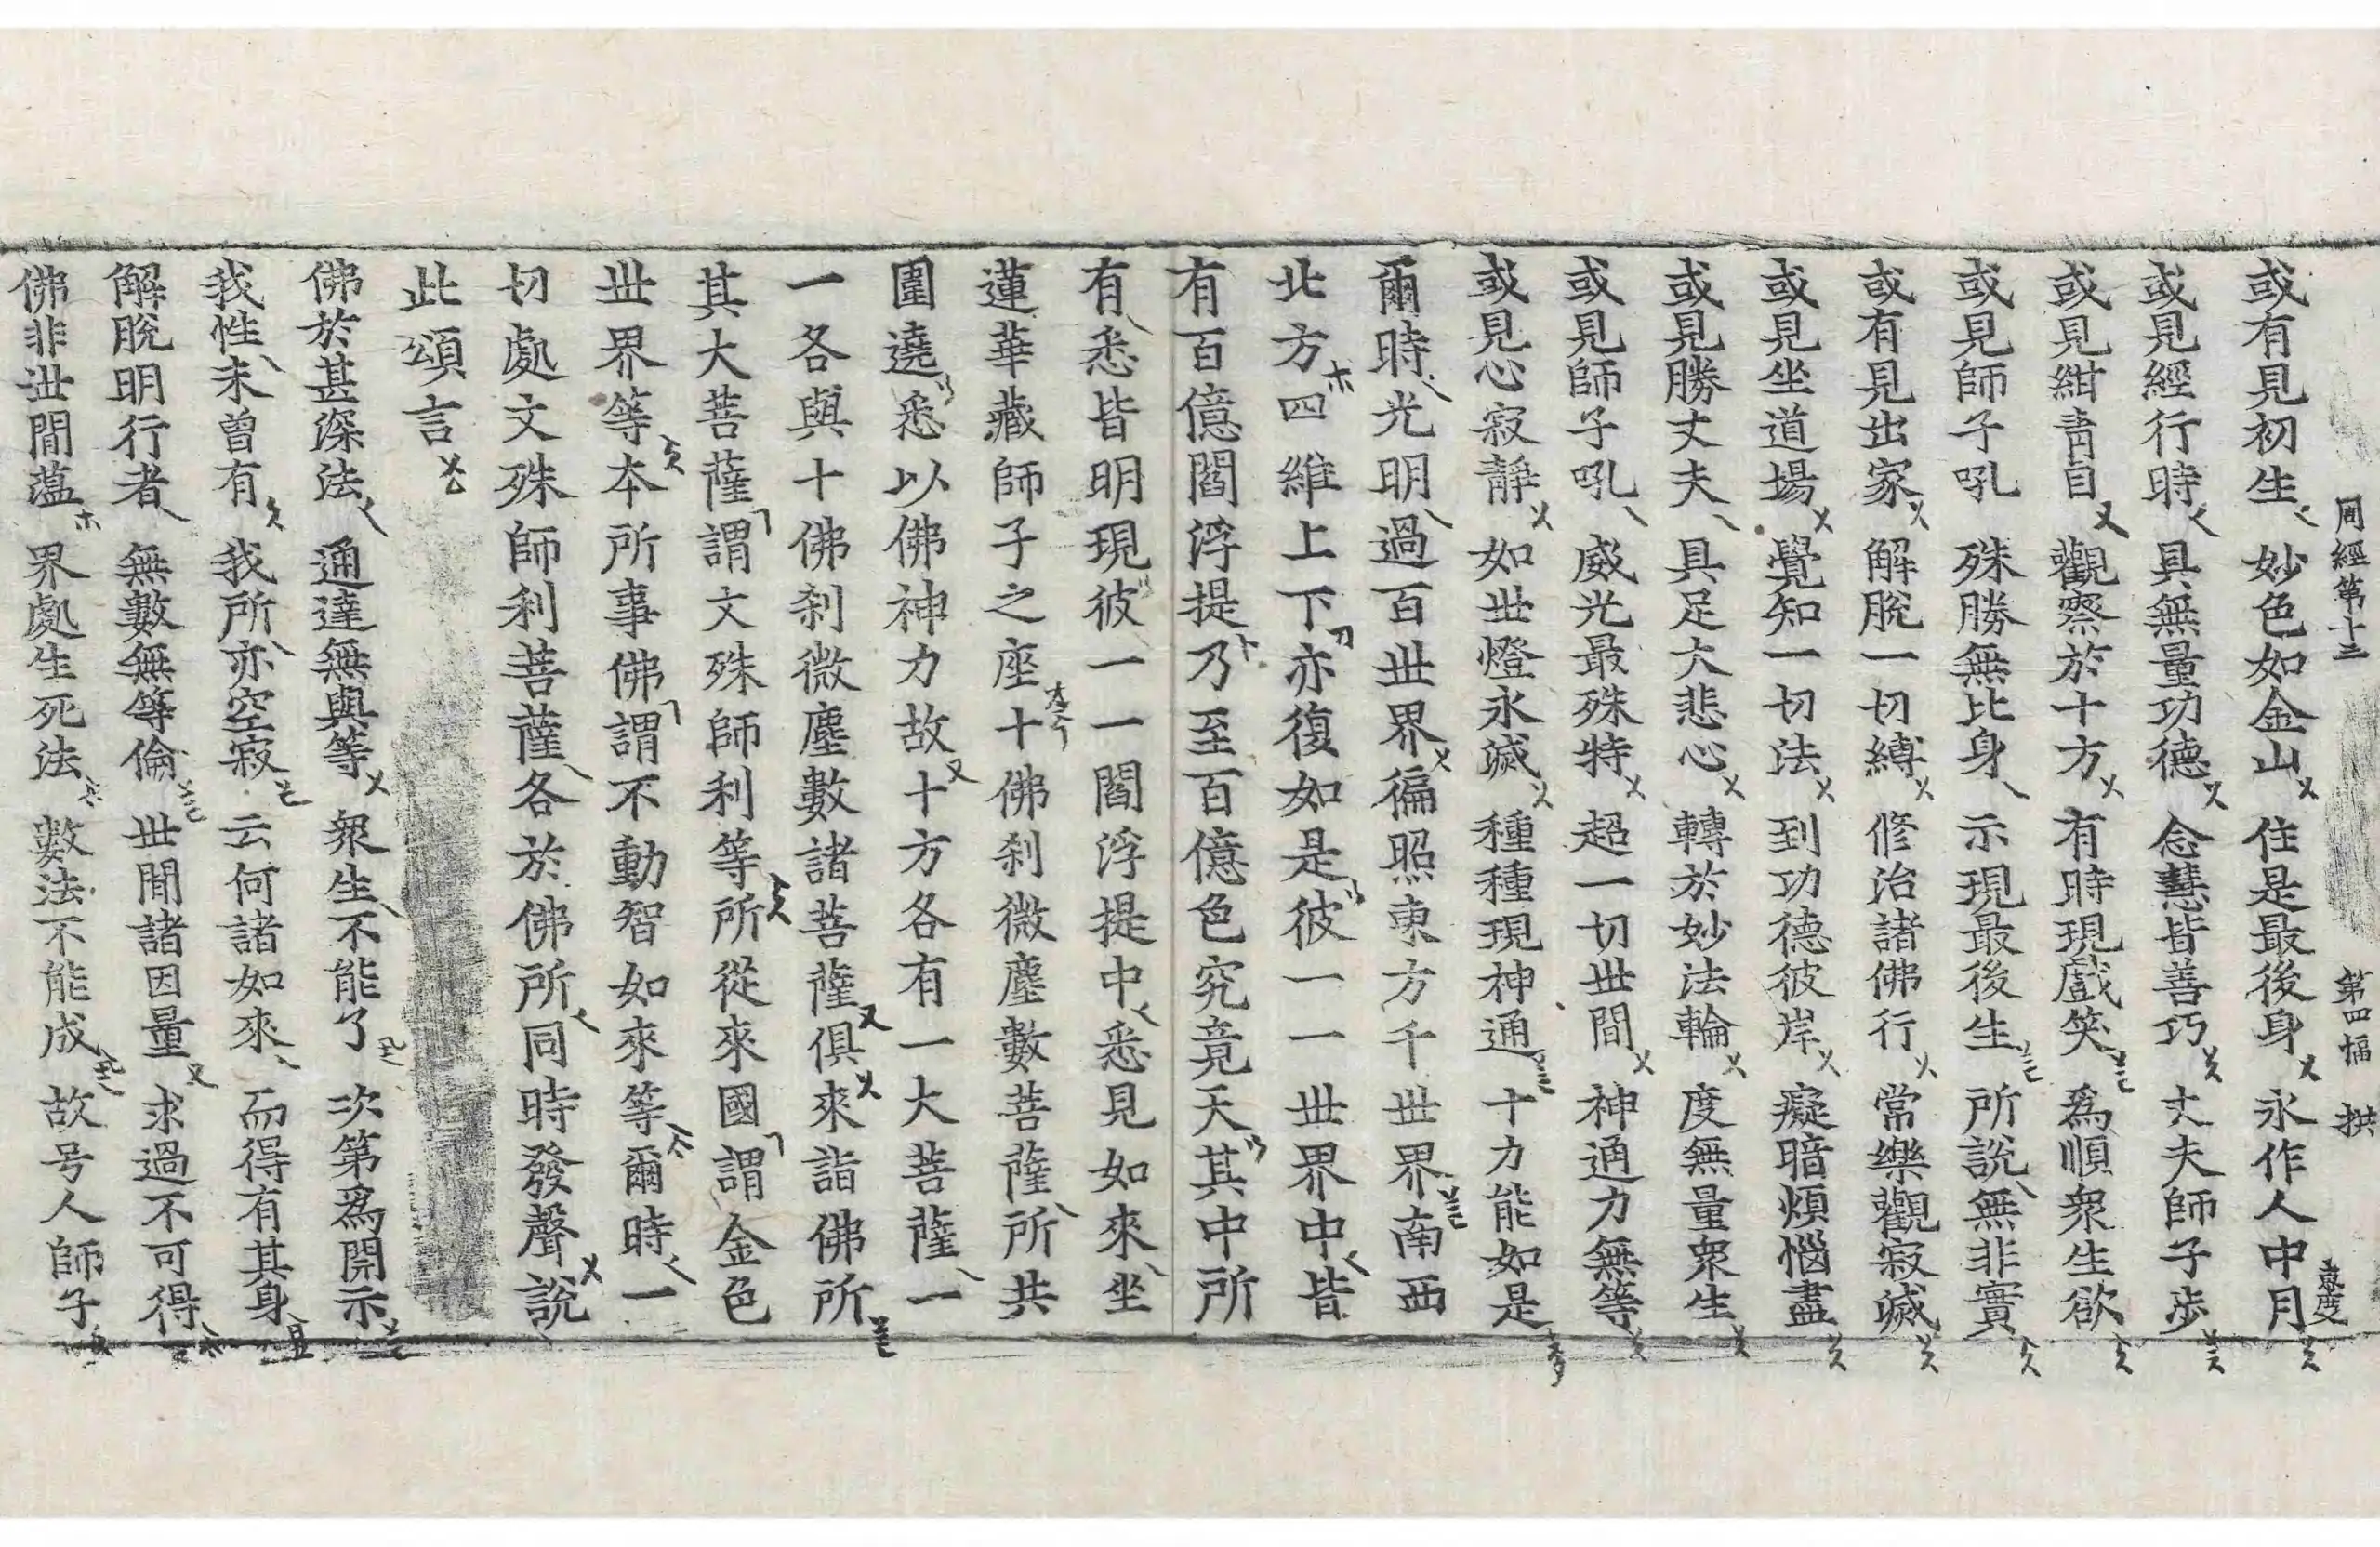 周經第十三 第四幅 拱
或有見初生 妙色如金山 住是最後身 永作人中月
或見經行時 具無量功德 念慧皆善巧 丈夫師子步
或見紺青目 觀察於十方 有時現戲笑 爲順衆生欲
或見師子吼 殊勝無比身 示現最後生 所說無非實
或有見出家 解脫一切縛 修治諸佛行 常樂觀寂滅
或見坐道場 覺知一切法 到功德彼岸 癡暗煩惱盡
或見勝丈夫 具足大悲心 轉於妙法輪 度無量衆生
或見師子吼 威光最殊特 超一切世間 神通力無等
或見心寂靜 如世燈永滅 種種現神通 十力能如是
爾時光明過百世界徧照東方千世界南西
北方四維上下亦復如是彼一一世界中皆
有百億閻浮提乃至百億色究竟天其中所
有悉皆明現彼一一閻浮提中悉見如來坐
蓮華藏師子之座十佛刹微塵數菩薩所共
圍遶悉以佛神力故十方各有一大菩薩一
一各與十佛刹微塵數諸菩薩俱來詣佛所
其大菩薩謂文殊師利等所從來國謂金色
世界等本所事佛謂不動智如來等爾時一
切處文殊師利菩薩各於佛所同時發聲說
此頌言
佛於甚深法 通達無與等 衆生不能了 次第爲開示
我性未曾有 我所亦空寂 云何諸如來 而得有其身
解脫明行者 無數無等倫 世間諸因量 求過不可得
佛非世間蘊 界處生死法 數法不能成 故号人師子